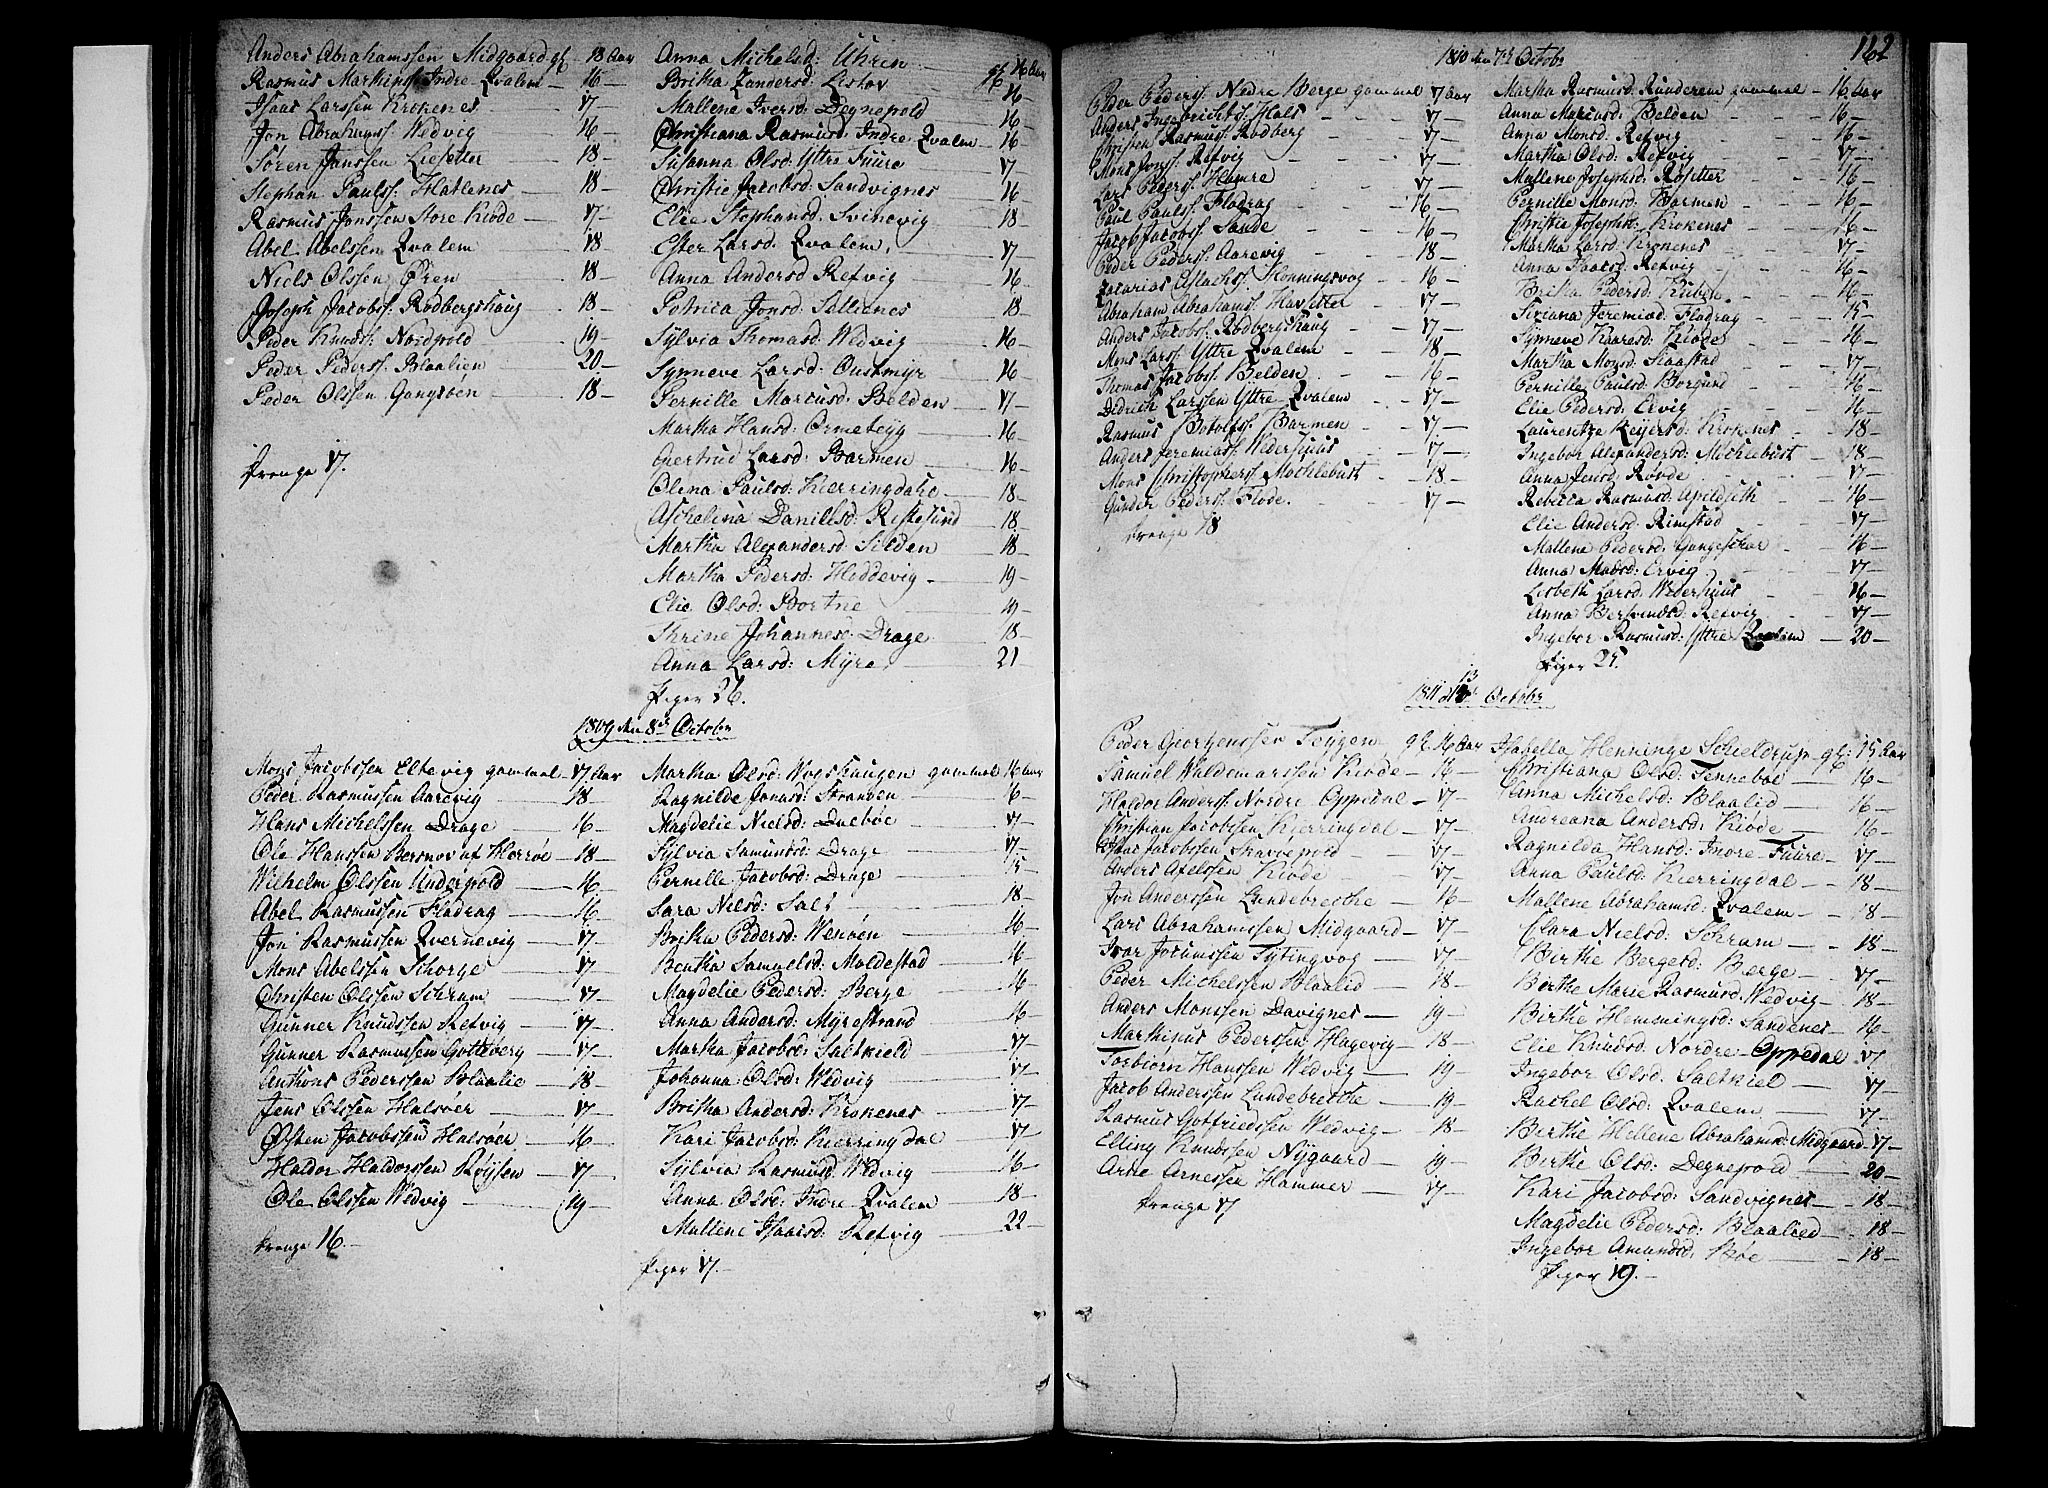 Anders Abrahamssen Midgaard gl. 18 Aar
Rasmus Markuss: Indre Qvalem — 16 —
Isaac Larssen Krokenes — 17
Jon Abrahams: Wedvig — 16 —
Sören Janssen Liesetter 18 —
Stephan Paulss: Hatlenes — 18 —
Rasmus Jonssen Store Kiöde — 17 —
Abel Abelssen Qvalem — 18 —
Niels Olssen Ören — 18 —
Joseph Jacobss: Rödbergshaug — 18 —
Peder Knuds: Nordpold — 19 —
Peder Pederss: Blaalien — 20 —
Peder Olssen Gangsöen — 18 —
Drenge 17.
Anna Michelsd: Uhren gl. 16 Aar
Britha Zandersd: Listov 16 —
Mallene Iversd: Degnepold — 16 —
Christiana Rasmusd: Indre Qvalem — 16 —
Susanna Olsd: Yttre Fuure — 17 —
Christie Jacobsd: Sandvignes — 16 —
Elie Stephansd: Svinevig — 18 —
Ester Larsd: Qvalem, — 17 —
Anna Andersd Refvig — 16 —
Petrica Jonsd: Sellienes — 18 —
Sylvia Thomasd: Wedvig — 16 —
Synneve Larsd: Oustmyr — 16 —
Pernille Marcusd: Belden — 17 —
Martha Hansd: Ormeteyg — 16 —
Giertrud Larsd: Barmen — 16 —
Olina Paulsd: Kierringdahl — 18 —
Aschelina Danillsd: Ristesund — 18 —
Martha Alexandersd: Silden — 18 —
Martha Pedersd: Hoddevig — 19 —
Elie Olsd: Bortne 19 —
Thrine Johannesd: Drage — 18 —
Anna Larsd: Myre, — 21 —
Piger 26.
1809 den 8de Octobr
Mons Jacobssen Eltevig gammel — 17 Aar
Peder Rasmussen Aarevig — 18 —
Hans Michelssen Drage — 16 —
Ole Hanssen Bersnov af Herröe — 18 —
Wilhelm Olssen Underpold — 16 —
Abel Rasmussen Flödrag — 16 —
Jon Rasmussen Qvernevig — 17 —
Mons Abelssen Schorge — 17 —
Christen Olssen Schram — 17 —
Gunner Knudssen Refvig — 17 —
Gunner Rasmussen Gotteberg — 17 —
Anthons Pederssen Blaalie — 18 —
Jens Olssen Halsöer — 17 —
Östen Jacobssen Halsöer — 16 —
Haldor Haldorssen Röysen — 17 —
Ole Olssen Wedvig — 19 —
Drenge 16. —
Martha Olsd: Wogshaugen gammel — 16 Aar
Ragnilde Jonasd: Stranden 16 —
Magdelie Nielsd: Dueböe 17 —
Sylvia Samundsd: Drage — 17 —
Pernille Jacobsd: Drage — 15 —
Sara Nilsd: Salt — 18 —
Britha Pedersd: Wenöen — 16 —
Bentha Samuelsd: Maldestad — 16 —
Magdelie Pedersd: Berge — 16 —
Anna Andersd: Myrestrand 16 —
Martha Jacobsd: Saltkield — 17 —
Johanna Olsd: Wedvig — 17 —
Britha Andersd: Krokenes — 17 —
Kari Jacobsd: Kierringdal — 17 —
Sylvia Rasmusd: Wedvig 16 —
Anna Olsd: Indre Qvalem — 18 —
Mallene Isaacsd: Refvig — 22 —
Piger 17. —
162
1810 den 7de Octobr
Peder Peders: Nedre Berge gammel — 17 Aar
Anders Ingebrichtss: Hals — 17 —
Christen Rasmuss: Rödberg — 17 —
Mons Jonss: Refvig — 17 —
Lars Pederss: Hamre — 17 —
Paul Paulss: Flödrag — 16 —
Jacob Jacobss Sande — 16 —
Peder Peders: Aarevig — 18 —
Zacarias Aslachss: Honningsvog — 16 —
Abraham Abrahams: Havsetter — 17 —
Anders Jacobss: Rödbergshaug — 17 —
Mons Larss: Yttre Qvalem — 18 —
Thomas Jacobss: Belden — 16 —
Didrich Larssen Yttre Qvalem — 17 —
Rasmus Botolfss: Barmen — 17 —
Anders Jeremiass: Wedershuus — 17 —
Mons Christophers: Mochlebust — 18 —
Gunder Peders: Flode. — 17 —
Drenge 18
Martha Rasmusd: Runderem gammel — 16 Aar
Anna Marcusd: Belden — 16 —
Anna Monsd: Refvig — 16 —
Martha Olsd: Refvig — 17 —
Mallene Josephsd: Rösetter — 16 —
Pernille Monsd: Barmen — 16 —
Christie Josephsd: Krokenes — 16 —
Martha Larsd: Krokenes — 17 —
Anna Isaacsd: Refvig — 16 —
Britha Pedersd: Kuben — 16 —
Siviana Jeremiasd: Flodrag — 15 —
Synneve Kaaresd: Kiöde — 16 —
Martha Monsd: Staastad — 17 —
Pernille Paulsd: Borgund — 16 —
Elie Pedersd: Ervig — 16 —
Laurentze Reyersd: Krokenes — 18 —
Ingebor Alexandersd: Michlebust — 18 —
Anna Jensd: Röyde — 17 —
Rebecca Rasmusd: Apildseth — 16 —
Elie Andersd: Rimstad — 17 —
Mallene Pedersd: Gangeschar — 16 —
Anna Madsd: Ervig — 17 —
Lisbeth Larsd: Wedershuus — 16 —
Anna Bersvendsd: Refvig — 17 —
Ingebor Rasmusd: Yttre Qvalem — 20 —
Piger 25.
13
1811 d Octobr
Peder Giortzenssen Teygen gl. 16 Aar
Samuel Waldemarssen Kiöde — 16 —
Haldor Anderss: Nordre Oppedal — 17 —
Christian Jacobssen Kierringdal — 17 —
Isaac Jacobssen Skaröepold — 17 —
Anders Axelssen Kiöde — 17 —
Jon Anderssen Lundebrecthe — 16 —
Lars Abrahamssen Midgaard — 17 —
Ivar Jocumssen Tytingvog — 17 —
Peder Michelssen Blaalid — 18 —
Anders Monssen Davignes — 19 —
Markinus Pederssen Hagevig — 18 —
Torbiörn Hanssen Wedvig — 19 —
Jacob Anderssen Lundebrecthe — 19 —
Rasmus Gotfriedssen Wedvig — 18 —
Elling Knudssen Nygaard — 19 —
Arne Arnessen Hammer — 17 —
Drenge 17
Isabella Henninge Schieldrup gl: 15 Aar
Christiana Olsd: Tenneböe — 16 —
Anna Michelsd: Blaalid — 16 —
Andreana Andersd: Kiöde — 16 —
Ragnilda Hansd: Indre Fuure — 17 —
Anna Paulsd: Kierringdal — 18 —
Mallene Abrahamsd: Qvalem — 18 —
Clara Nielsd: Schram — 18 —
Birthe Bergesd: Berge — 17 —
Birthe Marie Rasmusd: Wedvig — 18 —
Birthe Hemmingsd: Sandenes — 16 —
Elie Knudsd: Nordre Oppedal 17 —
Ingebor Olsd. Saltkiel — 17 —
Rachel Olsd: Qvalem — 17 —
Birthe Hellene Abrahamsd: Midgaard — 17 —
Birthe Olsd: Degnepold — 20 —
Kari Jacobsd: Sandvignes — 18 —
Magdelie Pedersd: Blaalied — 18 —
Ingebor Amundsd: Böe — 18 —
Piger 19. —